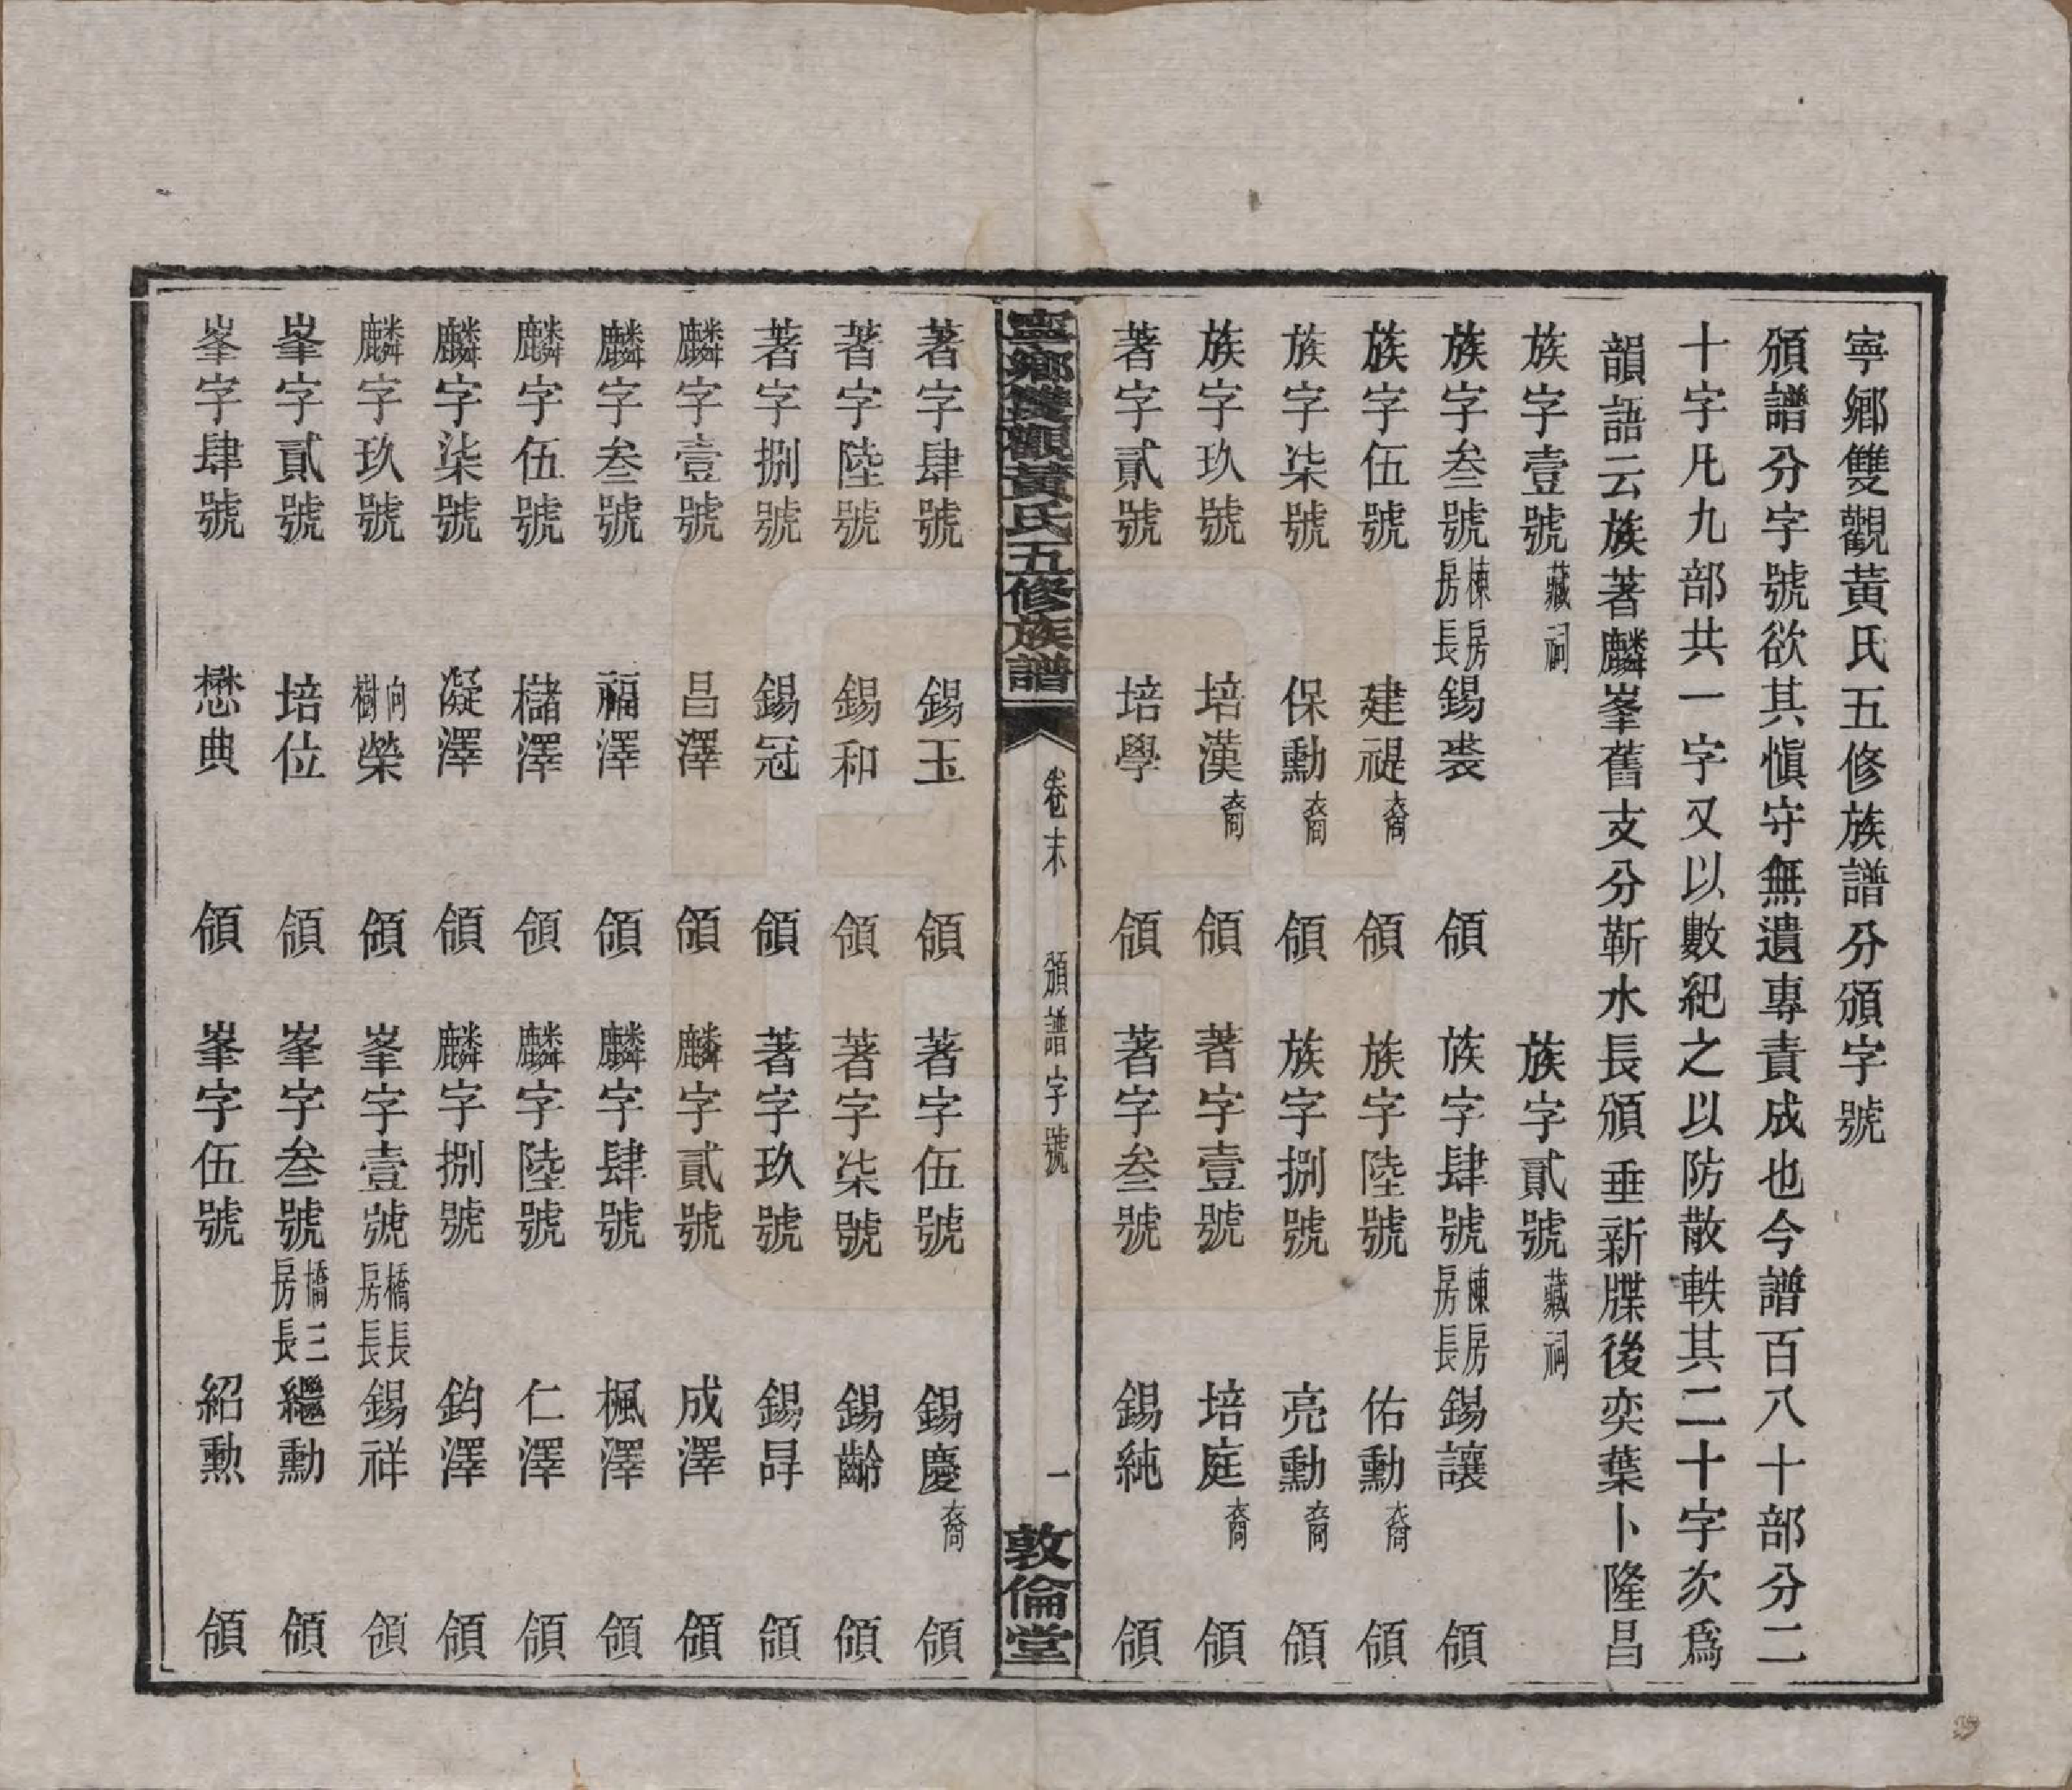 寧鄉雙觀黃氏五修族譜分頒字號
頒譜分字號欲其愼守無遺專責成也今譜百八十部分二
十字凡九部共一字又以數紀之以防散軼其二十字次爲
韻語云族著麟峯舊支分靳水長頒垂新牒後奕葉卜隆昌
族字壹號藏祠 族字貳號藏祠
族字叁號棟房房長錫裘 領 族字肆號棟房房長錫讓 領
族字伍號 建禔裔 領 族字陸號 佑勳裔 領
族字柒號 保勳裔 領 族字捌號 亮勳裔 領
族字玖號 培漢裔 領 著字壹號 培庭裔 領
著字貳號 培學 領 著字叁號 錫純 領
寧鄉雙觀黃氏五修族譜 卷末 頒譜字號 一 敦倫堂
著字肆號 錫玉 領 著字伍號 錫慶裔 領
著字陸號 錫和 領 著字柒號 錫齡 領
著字捌號 錫冠 領 著字玖號 錫 領
麟字壹號 昌澤 領 麟字貳號 成澤 領
麟字叁號 福澤 領 麟字肆號 楓澤 領
麟字伍號 櫧澤 領 麟字陸號 仁澤 領
麟字柒號 凝澤 領 麟字捌號 鈞澤 領
麟字玖號 向榮樹 領 峯字壹號橋長房長錫祥 領
峯字貳號 培位 領 峯字叁號橋三房長繼勳 領
峯字肆號 懋典 領 峯字伍號 紹勲 領